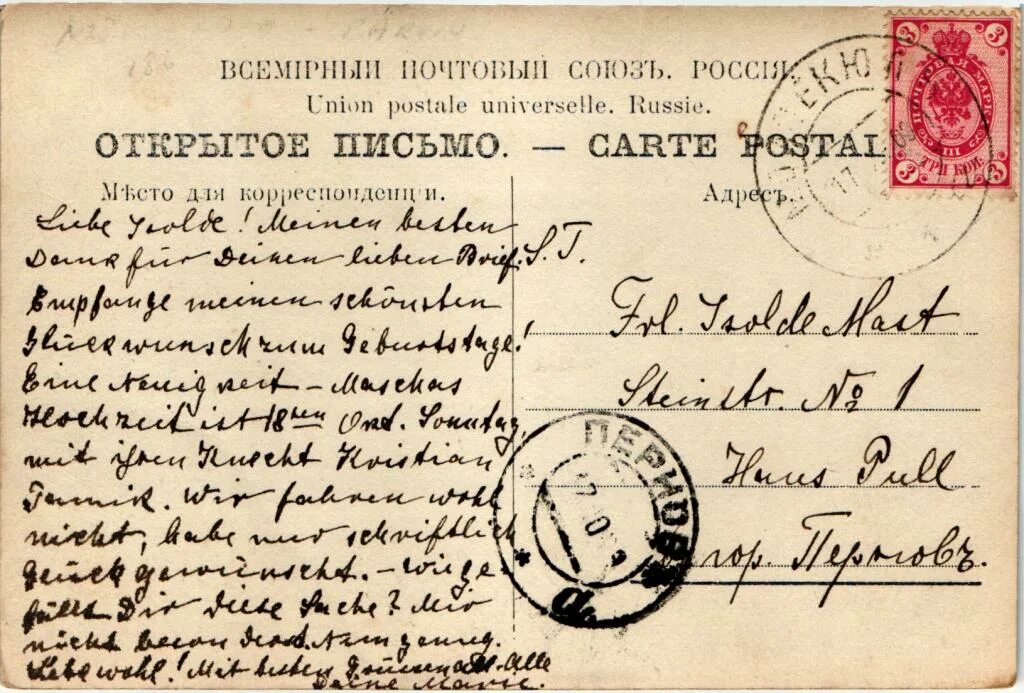 ВСЕМІРНЫЙ ПОЧТОВЫЙ СОЮЗЪ. РОССІЯ.
Union postale universelle. Russie.
ОТКРЫТОЕ ПИСЬМО. — CARTE POSTAL
Мѣсто для корреспонденціи.
Liebe Isolde! Meinen besten
Dank für Deinen lieben Brief.
Empfange meinen schönsten
Glückwunsch zum Geburtstage!
Eine Neuigkeit – Maschas
Hochzeit ist 18ten Okt. Sonntag,
mit ihren Knecht Kristian
Tamnik. Wir fahren wohl
nicht, habe nur schriftlich
Glück gewünscht. – Wie ge-
fällt Dir diese Sache? Mir
nicht
Lebe wohl! Mit besten Grüssen Alle
Deine Marie.
Адресъ.
S. T.
Frl. Isolde Mast
Steinstr. № 1
Haus Pull
гор. Перновъ.
3 3
ПОЧТОВАЯ МАРКА
ТРИ КОП.
3 3
17
ПЕРНОВ
17 10
а